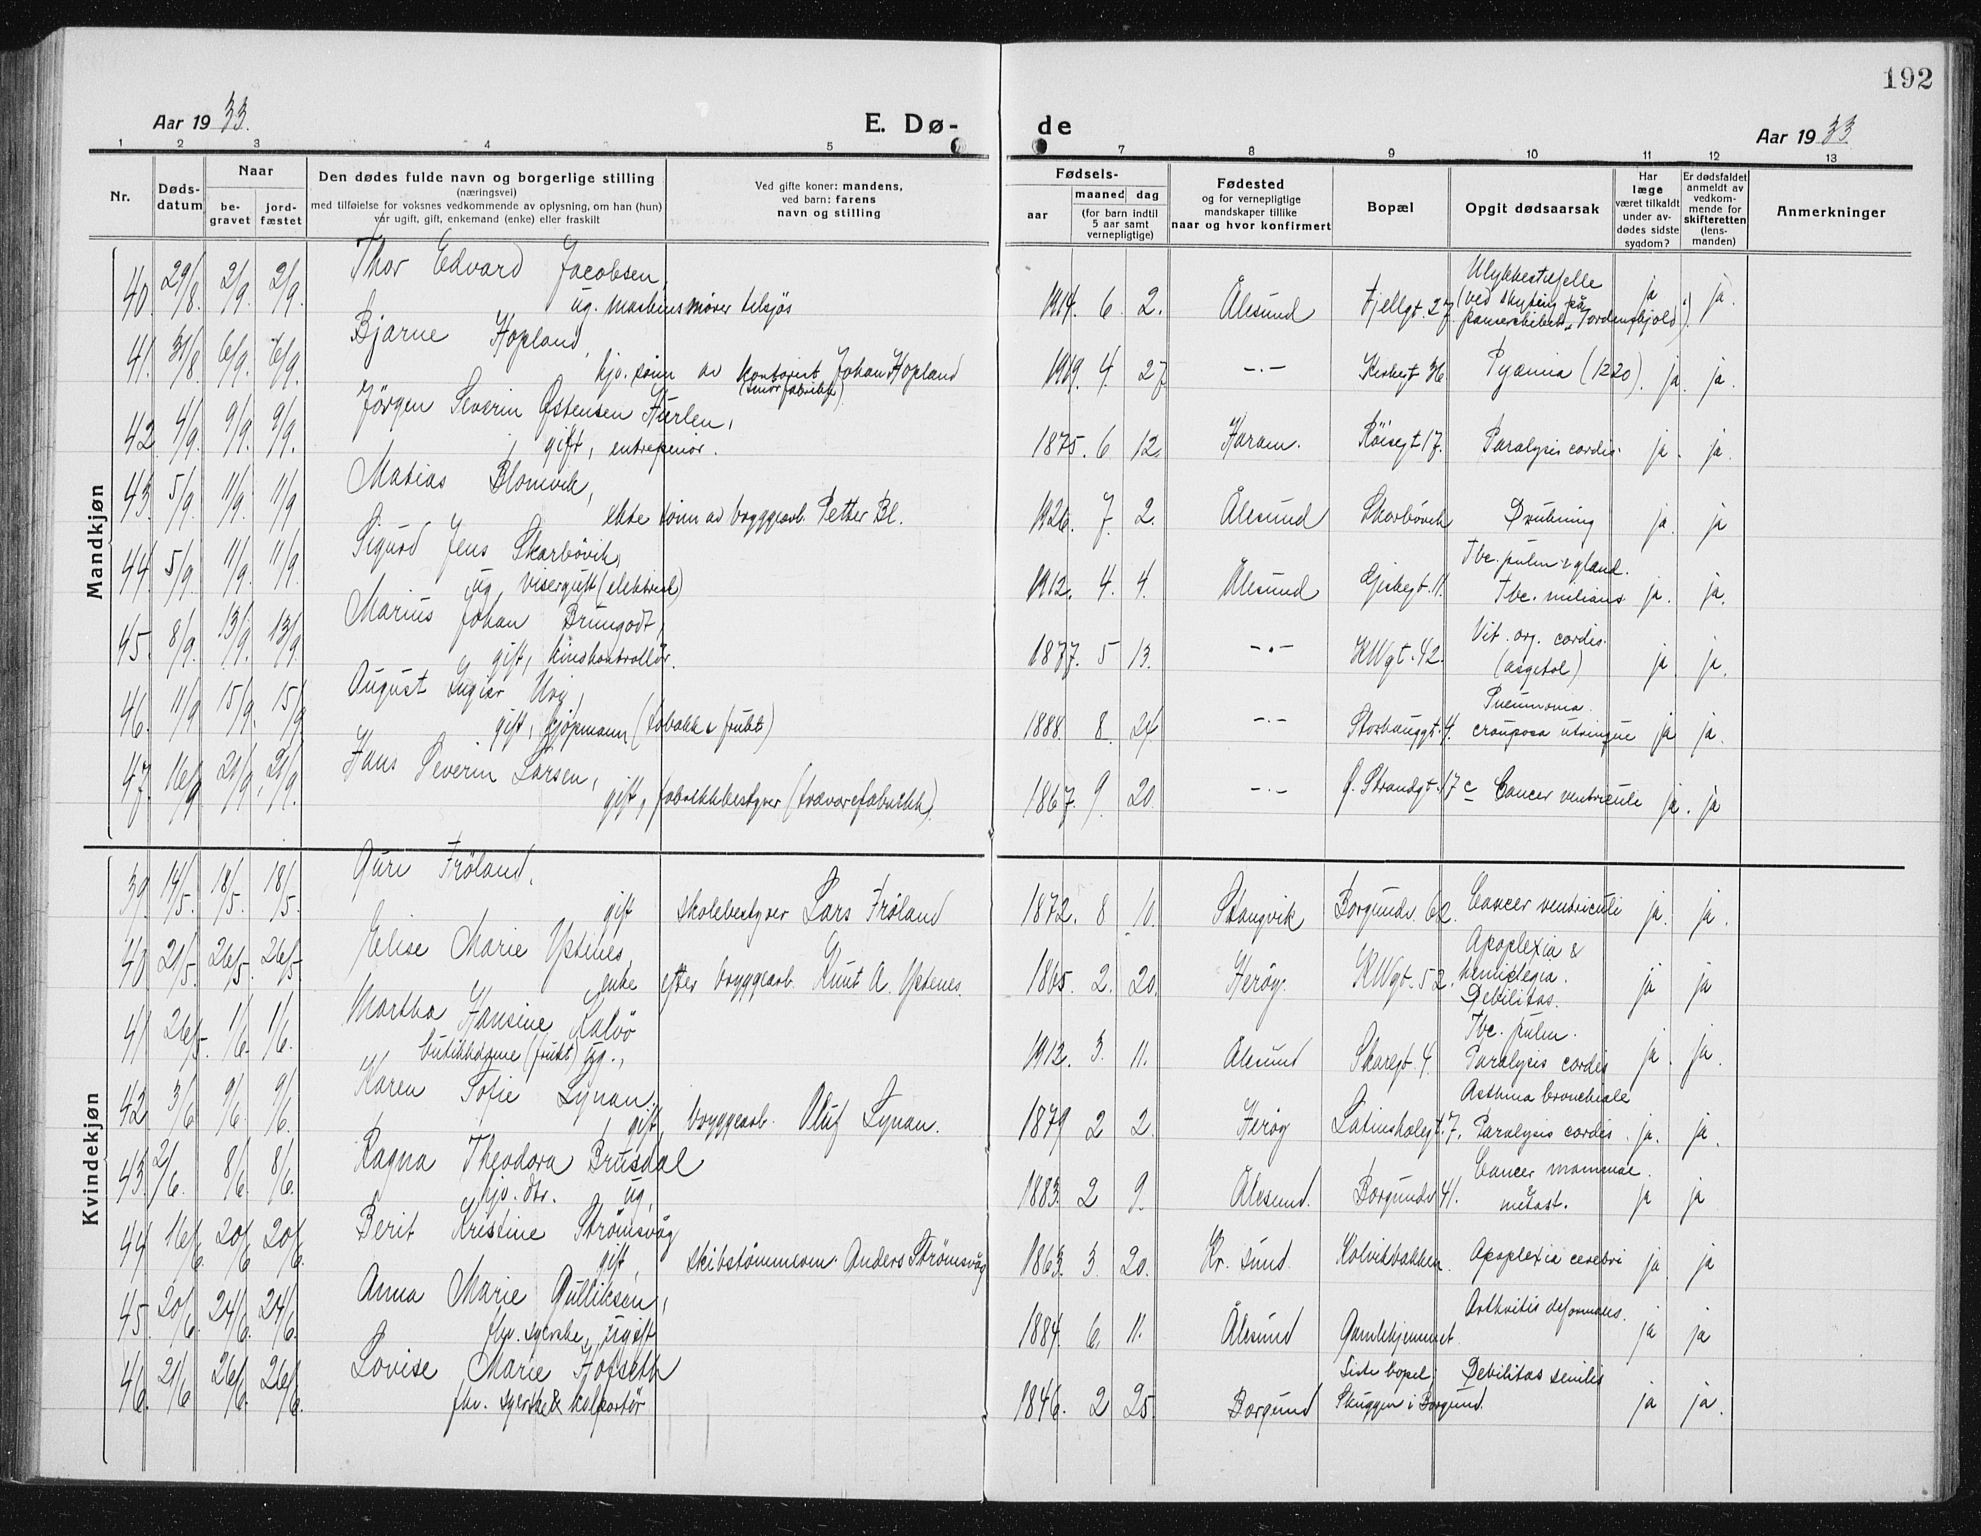 192
Aar 1933.
E. Dø-
de
Aar 1933.
1 2 3 4 5 7 8 9 10 11 12 13
Nr.
Døds-
datum
Naar
be-
gravet
jord-
fæstet
Den dødes fulde navn og borgerlige stilling
(næringsvei)
med tilføielse for voksnes vedkommende av oplysning, om han (hun)
var ugift, gift, enkemand (enke) eller fraskilt
Ved gifte koner: mandens,
ved barn: farens
navn og stilling
Fødsels-
aar
maaned
dag
(for barn indtil
5 aar samt
vernepligtige)
Fødested
og for vernepligtige
mandskaper tillike
naar og hvor konfirmert
Bopæl
Opgit dødsaarsak
Har
læge
været tilkaldt
under av-
dødes sidste
sygdom?
Er dødsfaldet
anmeldt av
vedkom-
mende for
skifteretten
(lens-
manden)
Anmerkninger
Mandkjøn
40. 29/8. 2/9. 2/9. Thor Edvard Jacobsen,
ug. tilsjøs
1914. 6 2. Ålesund Fjellgt. 27 Ulykkestilfelle
(ved skyting på
panserskibet "Tordenskjold") ja ja.
41. 31/8 6/9. 6/9. Bjarne Hopland,
hjv. sønn av kontorist Johan Hopland
(smørfabrikk)
1919. 4. 27 -"- 36. Pyæmia (1220). ja. ja.
42 4/9. 9/9. 9/9. Jørgen Severin Østensen Hurlen,
gift, entreprenør.
1875. 6 12. Haram. Røisegt 17. Paralysis cordis. ja. ja.
43. 5/9. 11/9. 11/9. Matias Blomvik,
ekte sønn av bryggearb. Petter Bl.
1926. 7. 2. Ålesund Skarbøvik Drukning ja. ja
44. 5/9. 11/9. 11/9. Sigurd Jens Skarbøvik,
ug. visergutt (elektrisk)
1912. 4. 4. Ålesund 11. Tbc. pulm & gland.
Tbc. miliaris ja. ja.
45. 8/9. 13/9. 13/9. Marius Johan Brungodt,
gift, kinokontrollør.
1877. 5 13. -"- KWgt. 42. Vit. org. cordis.
ja ja.
46. 11/9 15/9. 15/9 August Ingvar
gift, kjøpmann (tobakk & frukt)
1888. 8. 24. -"- Storhauggt. 4. Pneumonia
crouposa utrinque ja ja.
47. 16/9 21/9. 21/9. Hans Severin Larsen,
gift, fabrikkbestyrer (trævarefabrikk).
1867. 9. 20. -"- Ø. Strandgt. 17 c Cancer ventriculi ja. ja
Kvindekjøn
39. 14/5. 18/5. 18/5. Guri Frøland,
gift skolebestyrer Lars Frøland
1872. 8 10. Stangvik Borgundv. 62. Cancer ventriculi ja. ja.
40 21/5. 26/5. 26/5. Elise Marie Ystenes,
enke efter bryggearb. Knut A. Ystenes.
1865. 2. 20. Herøy. KWgt. 52. Apoplexia &
hemiplegia.
Debilitas. ja ja
41 26/5. 1/6. 1/6. Martha Hansine Kalvø
butikkdame (frukt) ug.,
1912. 3. 11. Ålesund Skaregt. 4. Tbc. pulm.
Paralysis cordis ja. ja.
42 3/6 9/6. 9/6. Karen Sofie Synan,
gift bryggearb. Oluf Synan.
1879 2 2. Herøy Latinskolegt. 7. Asthma bronchiale
Paralysis cordis. ja. ja.
43. 2/6. 8/6. 8/6. Ragna Theodora Brusdal
hjv. dtr. ug.
1883. 2 9. Ålesund. Borgundv. 41. Cancer mammae.
& metast. ja ja
44 16/6. 20/6 20/6. Berit Kristine Strømsvåg
gift, skibstømmerm. Anders Strømsvåg
1863. 3. 20. Kr. sund. Kolvikbakken. Apoplexia cerebri ja ja.
45. 20/6. 24/6. 24/6. Anna Marie Gulliksen,
fhv. syerske, ugift
1884. 6. 11. Ålesund Gamlehjemmet. Arthritis deformans. ja ja
46. 21/6 26/6. 26/6. Lovise Marie Hofseth
fhv. syerske & kolportør
1846. 2 25. Borgund Siste bopel:
Skuggen i Borgund. Debilitas senilis ja ja.